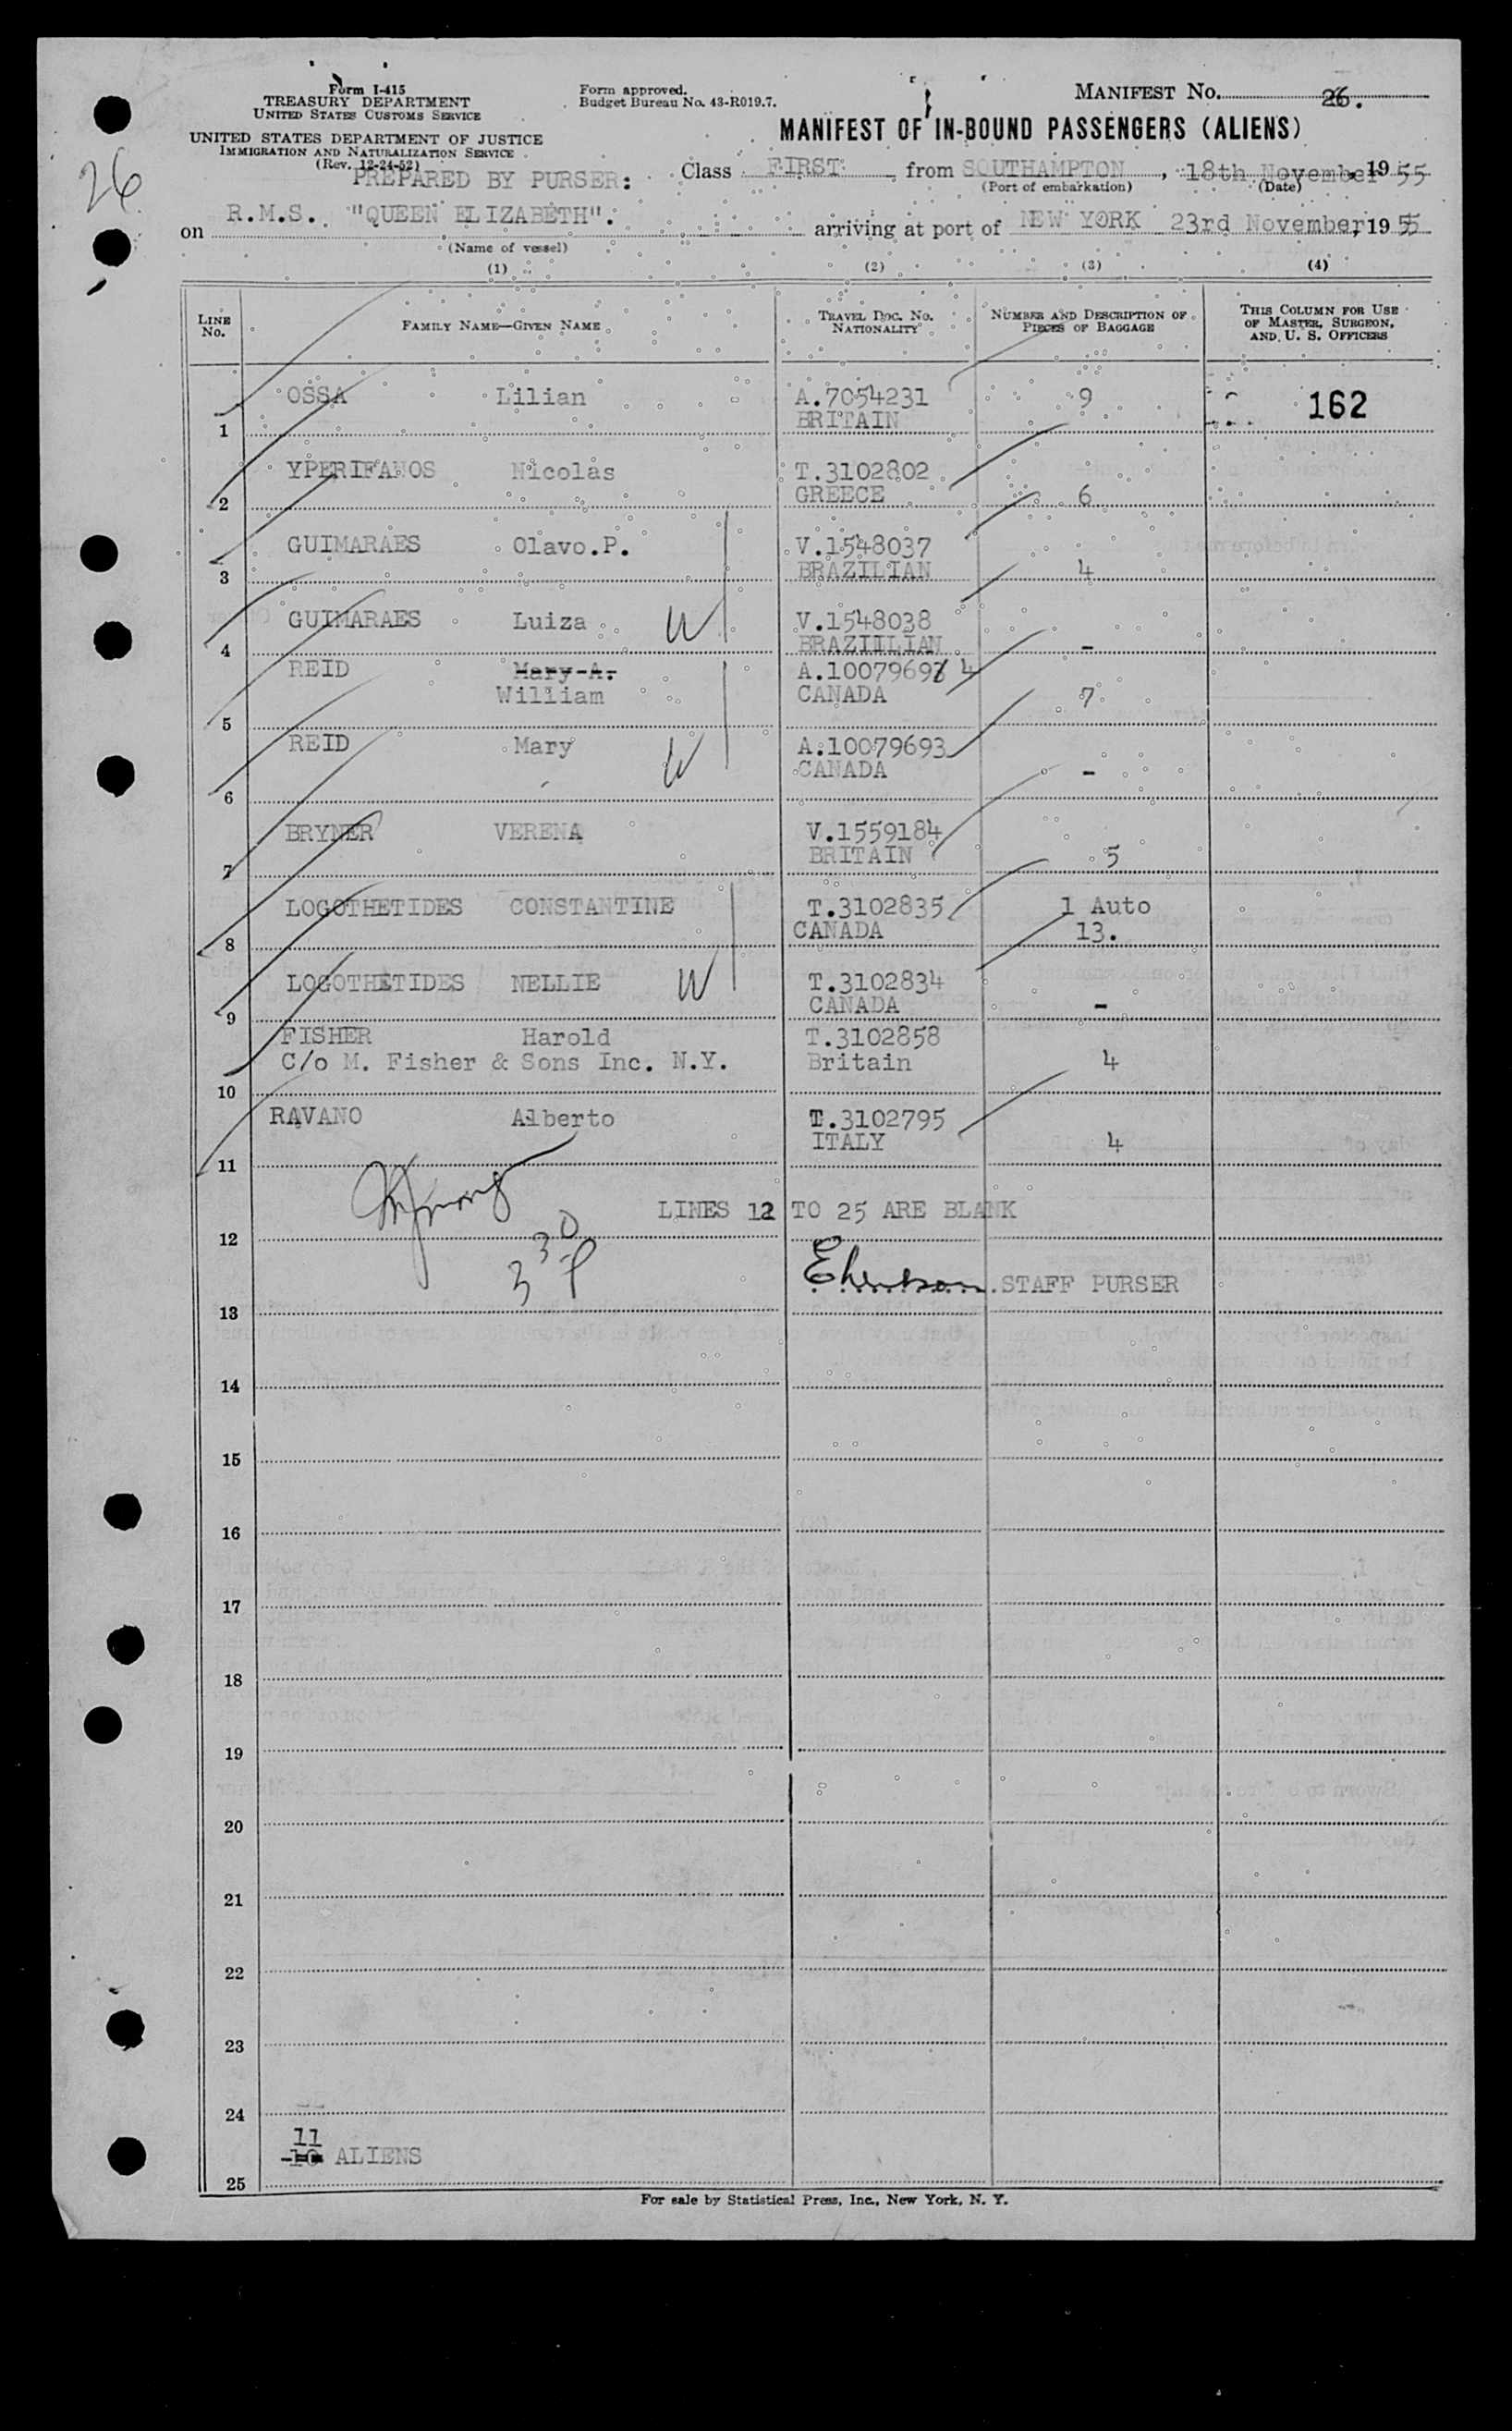 Form I-415
TREASURY DEPARTMENT
UNITED STATES CUSTOMS SERVICE
UNITED STATES DEPARTMENT OF JUSTICE
IMMIGRATION AND NATURALIZATION SERVICE
(Rev. 12-24-52)
Form approved.
Budget Bureau No. 43-R019.7.
MANIFEST No. 26.
MANIFEST OF IN-BOUND PASSENGERS (ALIENS)
26
PREPARED BY PURSER:
Class FIRST from SOUTHAMPTON, 18th November, 1955
(Port of embarkation) (Date)
on R.M.S. "QUEEN ELIZABETH". arriving at port of NEW YORK 23rd November, 1955
(Name of vessel)
(1) (2) (3) (4)
LINE No. FAMILY NAME—GIVEN NAME TRAVEL DOC. No. NATIONALITY NUMBER AND DESCRIPTION OF PIECES OF BAGGAGE THIS COLUMN FOR USE OF MASTER, SURGEON, AND U. S. OFFICERS
1 OSSA Lilian A.7054231 9 162
BRITAIN
2 YPERIFANOS Nicolas T.3102802
GREECE 6
3 GUIMARAES Olavo.P. V.1548037
BRAZILIAN 4
4 GUIMARAES Luiza W V.1548038
BRAZIILIAN -
5 REID Mary A. A.10079697 4
William CANADA 7
6 REID Mary W A.10079693
CANADA -
7 BRYNER VERENA V.1559184
BRITAIN 5
8 LOGOTHETIDES CONSTANTINE T.3102835 1 Auto
CANADA 13.
9 LOGOTHETIDES NELLIE W T.3102834
CANADA -
10 FISHER Harold T.3102858
C/o M. Fisher & Sons Inc. N.Y. Britain 4
11 RAVANO Alberto T.3102795
ITALY 4
LINES 12 TO 25 ARE BLANK
12
330 P
STAFF PURSER
13
14
15
16
17
18
19
20
21
22
23
24
11
10 ALIENS
25
For sale by Statistical Press, Inc., New York, N. Y.